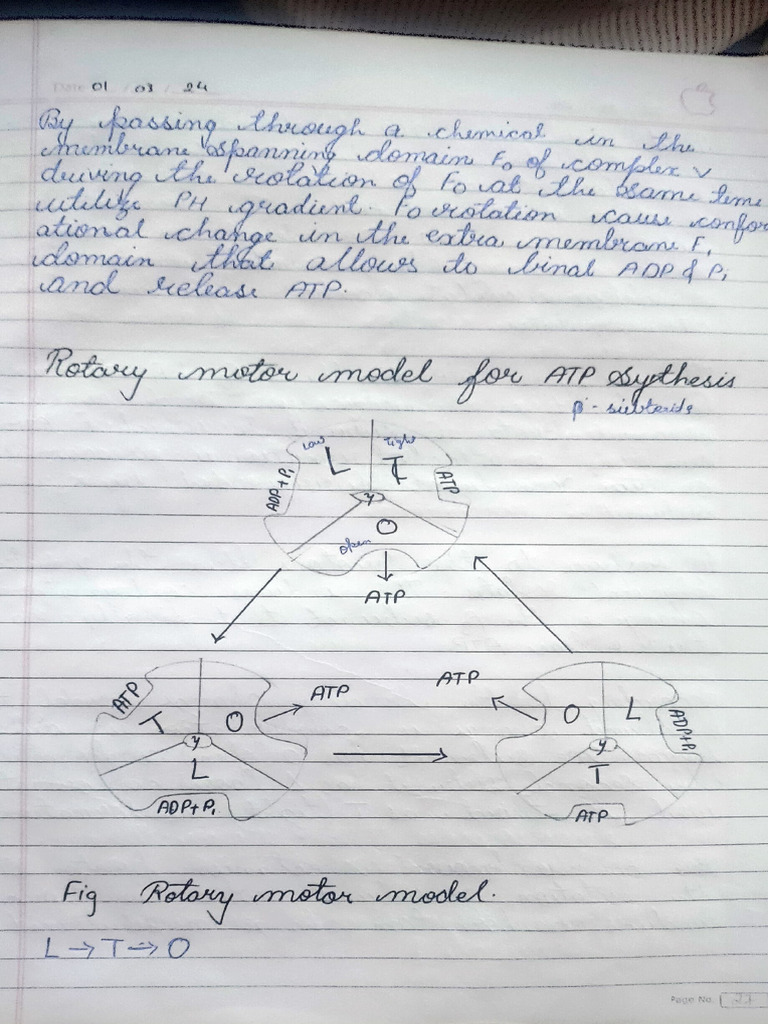 Date 01 / 03 / 24
By passing through a chemical in the
membrane spanning domain Fo of complex v
driving the rotation of Fo at the same time
utilize PH gradient. Fo rotation cause confor
ational change in the extra membrane F1
domain that allows to binal ADP & Pi
and release ATP.
Rotary motor model for ATP Sythesis
β - subunits
Low
L
Tight
T
ADP+Pi
ATP
γ
O
Open
ATP
ATP
T
O
ATP
γ
L
ADP+Pi
ATP
O
L
ADP+Pi
γ
T
ATP
Fig Rotary motor model.
L → T → O
Page No. 27